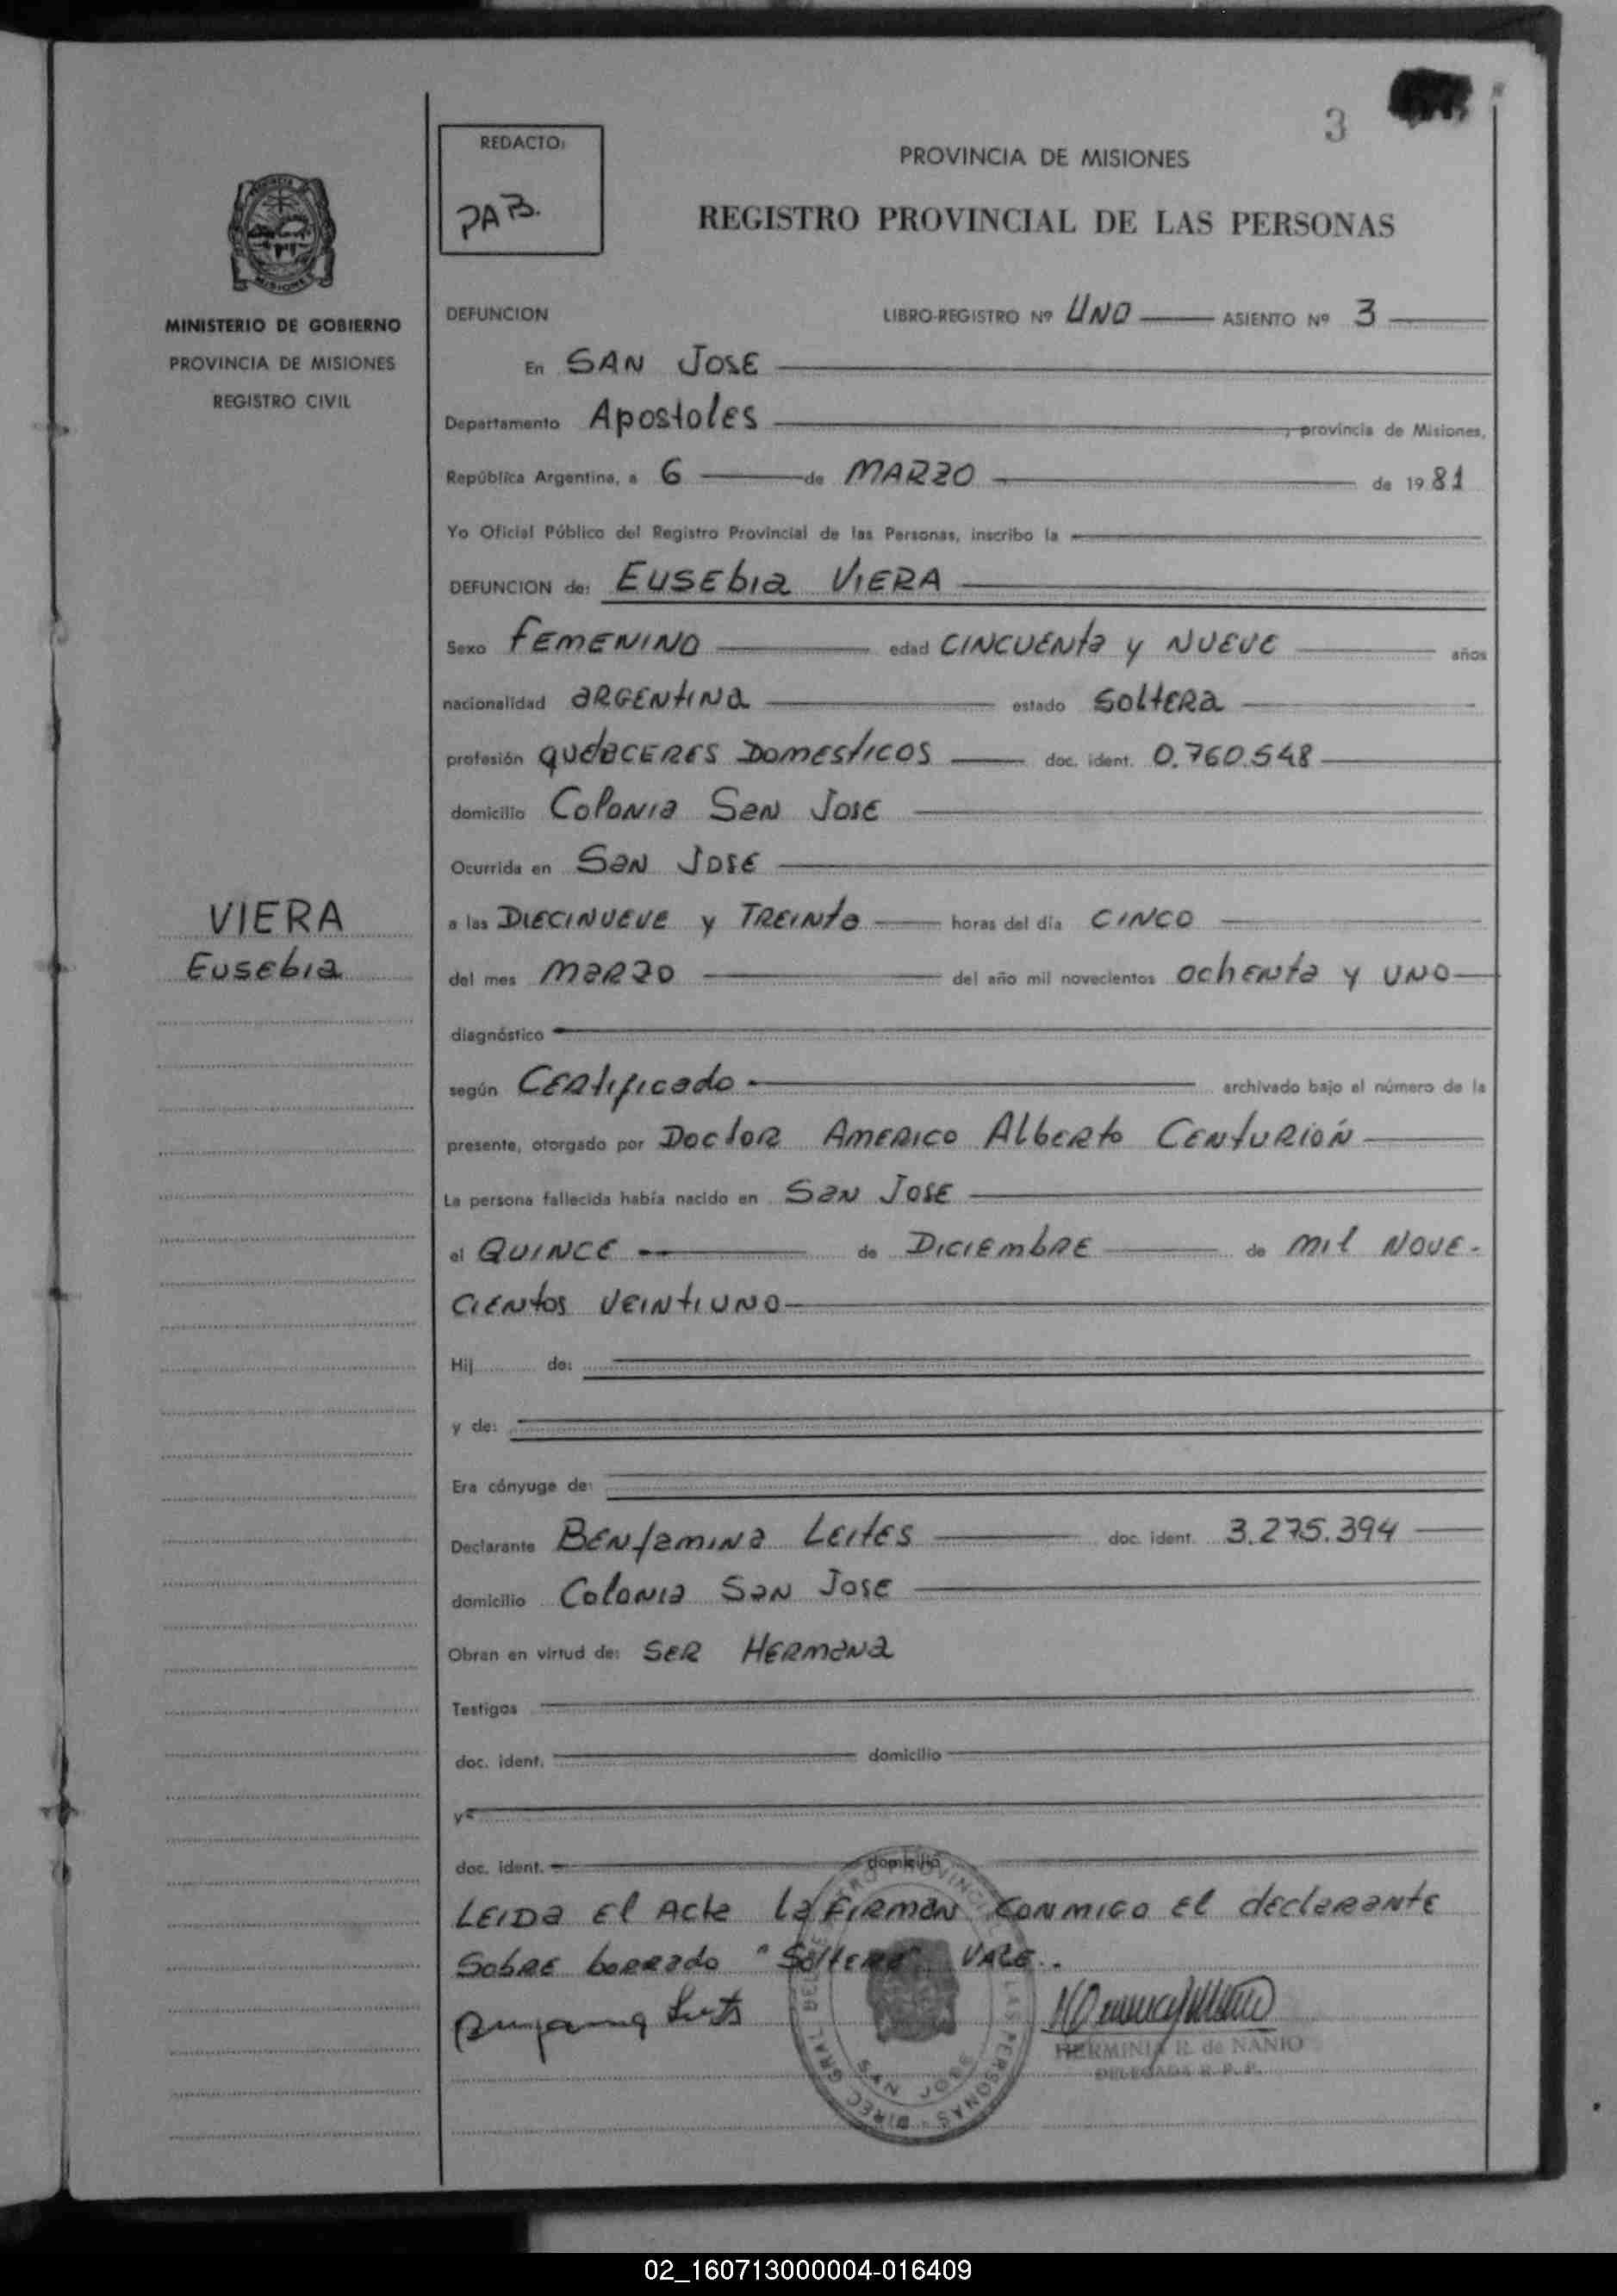 3
REDACTO:
PAB.
PROVINCIA DE MISIONES
REGISTRO PROVINCIAL DE LAS PERSONAS
MINISTERIO DE GOBIERNO
PROVINCIA DE MISIONES
REGISTRO CIVIL
DEFUNCION LIBRO-REGISTRO Nº UNO ASIENTO Nº 3
En SAN JOSE
Departamento Apostoles, provincia de Misiones,
República Argentina, a 6 de MARZO de 1981
Yo Oficial Público del Registro Provincial de las Personas, inscribo la
DEFUNCION de: EUSEbia VIERA
Sexo FEMENINO edad CINCUENta y NUEVE años
nacionalidad aRGENtiNa estado SoltERa
profesión QUEaCERES DomEsticos doc. ident. 0.760.548
domicilio Colonia San Jose
Ocurrida en San JOSE
VIERA
Eusebia
a las DIECINUEVE y TREINta horas del día CINCO
del mes maRZo del año mil novecientos ochENta y UNO
diagnóstico
según CERtificado archivado bajo el número de la
presente, otorgado por DoctoR AMERICO AlbERto CENtuRióN
La persona fallecida había nacido en San JOSE
el QUINCE de DICIEmbRE de mil NOVE-
CIENtos VEINtiUNO
Hij de:
y de:
Era cónyuge de:
Declarante BENJamiNa LEitES doc. ident. 3.275.394
domicilio Colonia San Jose
Obran en virtud de: SER HERmaNa
Testigos
doc. ident. domicilio
y
doc. ident. domicilio
LEIDa El Acta la FIRMAN CONMIGO El declaRaNte
SobRE boRRado "SolteRa" VALE.
HERMINIA R. de NANIO
DELEGADA R. P. P.
DIREC GRAL DEL REGISTRO PROVINCIAL DE LAS PERSONAS
SAN JOSE
02_160713000004-016409